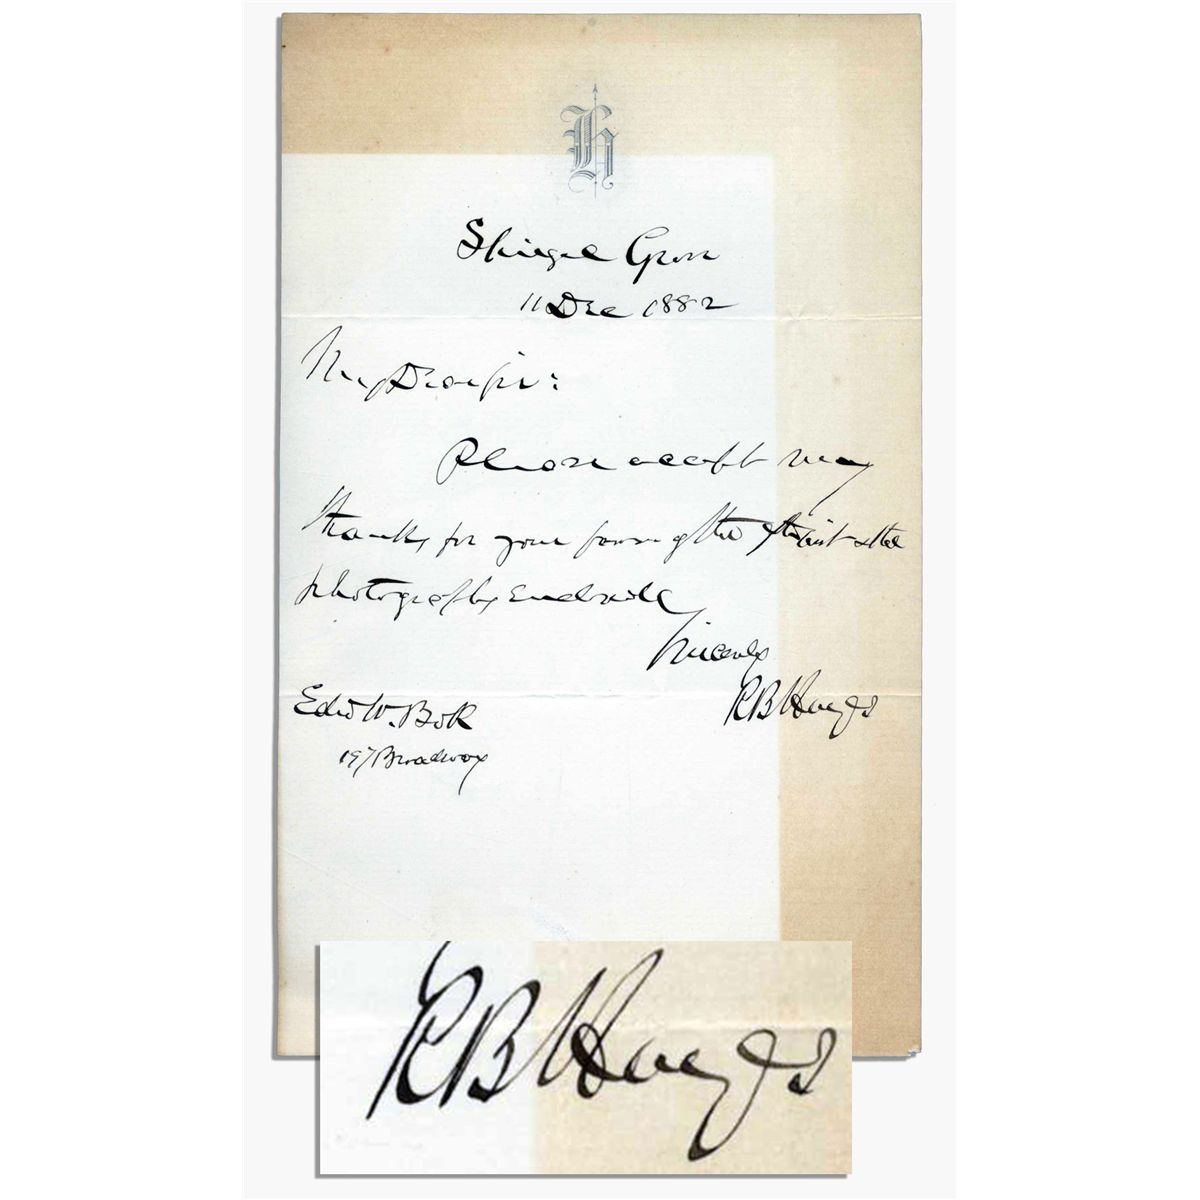 H
Spiegel Grove
11 Dec 1882
My Dear Sir:
Please accept my
thanks for your favor of the & the
photographs enclosed
Sincerely
R B Hayes
Edw W. Bok
197 Broadway
R B Hayes